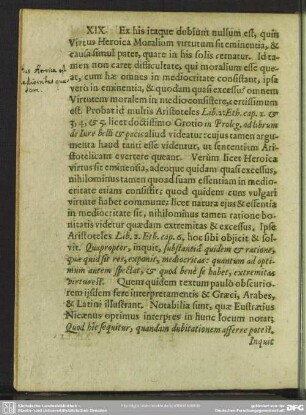 XIX. Ex his itaque dubium nullum est, quin
Virtus Heroica Moralium virtutum sit eminentia, &
causa simul patet, quare in his solis cernatur. Id ta-
men non caret difficultate, qui moralium esse que-
at, cum hæ omnes in mediocritate consistant, ipsa
verò in eminentia, & quodam quasi excessu? omnem
Virtutem moralem in medio consistere, certissimum
est. Probat id multis Aristoteles Lib. 2. Eth. cap. 2. &
3, 4, & 5. licet doctissimo Grotio in Proleg. ad librum
de Iure belli & pacis aliud videatur: cujus tamen argu-
menta haud tanti esse videntur, ut sententiam Ari-
stotelicam evertere queant. Verùm licet Heroica
virtus sit eminentia, adeoque quidam quasi excessus,
nihilominus tamen quoad suam essentiam in medio-
critate etiam consistit; quod quidem cum vulgari
virtute habet commune: licet natura ejus & essentia
in mediocritate sit, nihilominus tamen ratione bo-
nitatis videtur quædam extremitas & excessus, Ipse
Aristoteles Lib. 2. Eth. cap. 6, hoc sibi objicit & sol-
vit. Quapropter, inquit, substantiâ quidem & ratione,
quæ quid sit res, exponit, mediocritas: quantum ad opti-
mum autem spectat, & quod benè se habet, extremitas
virtus est. Quem quidem textum paulò obscurio-
rem iisdem ferè interpretamentis & Græci, Arabes,
& Latini illustrant. Notabilia sunt, quæ Eustratius
Nicænus optimus interpres in hunc locum notat;
Quod hîc sequitur, quandam dubitationem afferre potest.
Inquit